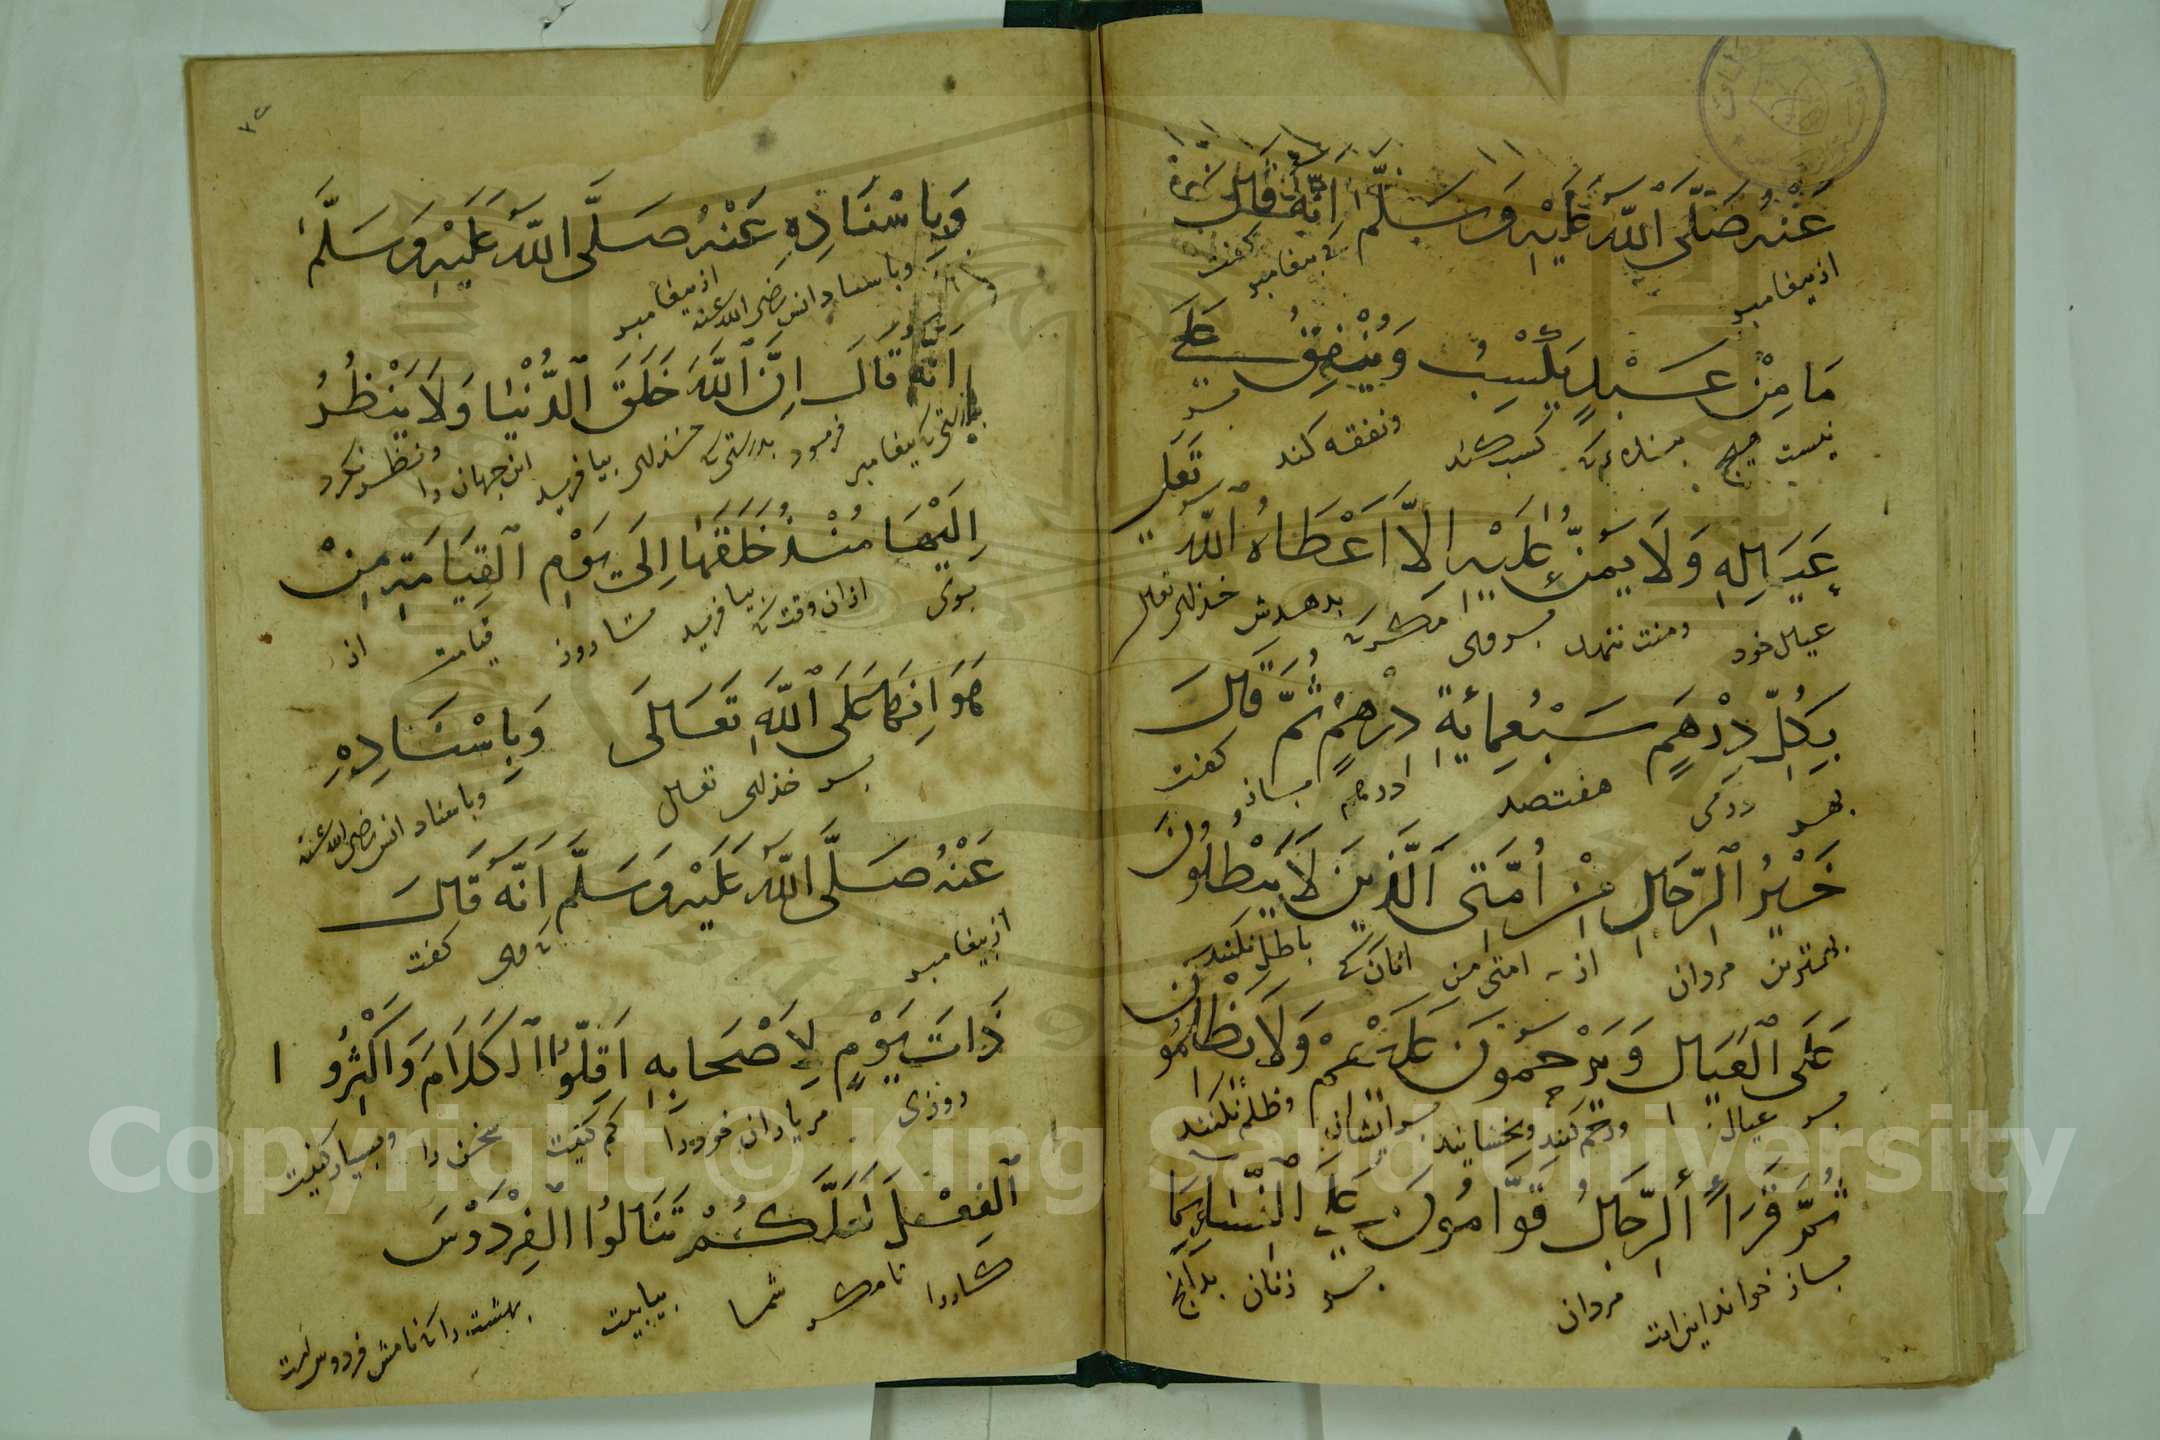 عَنْهُ صَلَّى اللّٰهُ عَلَيْهِ وَسَلَّمَ اَنَّهُ قَالَ
از پیغامبر که پیغامبر گفت
مَا مِنْ عَبْدٍ يَكْسِبُ وَيُنْفِقُ عَلَى
نیست هیچ بنده که کسب کند ونفقه کند بر
عِيَالِهِ وَلَا يَمُنُّ عَلَيْهِ اِلَّا اَعْطَاهُ اللّٰهُ تَعَالَى
عیال خود ومنت ننهد بر وی مگر که بدهدش خدای تعالی
بِكُلِّ دِرْهَمٍ سَبْعُمِائَةِ دِرْهَمٍ ثُمَّ قَالَ
بهر درمی هفتصد درهم پس از گفت
خَيْرُ الرِّجَالِ مِنْ اُمَّتِي اَلَّذِينَ لَا يَبْطُلُونَ
بهترین مردان از امتی من انان که باطل نکنند
عَلَى الْعِيَالِ وَيَرْحَمُونَ عَلَيْهِمْ وَلَا يَظْلِمُونَ
بر عیال ورحم کنند وبخشایند بر ایشان وظلم نکنند
ثُمَّ قَرَاَ اَلرِّجَالُ قَوَّامُونَ عَلَى النِّسَاءِ بِمَا
پس از خواند این ایت مردان بر زنان بدانچ
٧٢
وَبِاِسْنَادِهِ عَنْهُ صَلَّى اللّٰهُ عَلَيْهِ وَسَلَّمَ
وبا سناد انس رضی الله عنه از پیغامبر
اَنَّهُ قَالَ اِنَّ اللّٰهَ خَلَقَ الدُّنْيَا وَلَا يَنْظُرُ
بدرستی که پیغامبر فرمود بدرستی که خدای بیافرید این جهان را ونظر نکرد
اِلَيْهَا مُنْذُ خَلَقَهَا اِلَى يَوْمِ الْقِيَامَةِ مِنْ
بوی ازان وقت که بیافرید تا روز قیامت از
هَوَانِهَا عَلَى اللّٰهِ تَعَالَى وَبِاِسْنَادِهِ
بر خدای تعالی وبا سناد انس رضی الله عنه
عَنْهُ صَلَّى اللّٰهُ عَلَيْهِ وَسَلَّمَ اَنَّهُ قَالَ
از پیغامبر که وی گفت
ذَاتَ يَوْمٍ لِاَصْحَابِهِ اَقِلُّوا الْكَلَامَ وَاَكْثِرُوا
روزی مر یاران خود را کم کنیت سخن را وبسیار کنیت
الْفِعْلَ لَعَلَّكُمْ تَنَالُوا الْفِرْدَوْسَ
کار را تا مگر شما بیابیت بهشت را که نامش فردوس است
Copyright © King Saud University